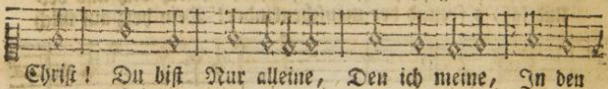 Christ! Du bist Nur alleine, Den ich meine, In den